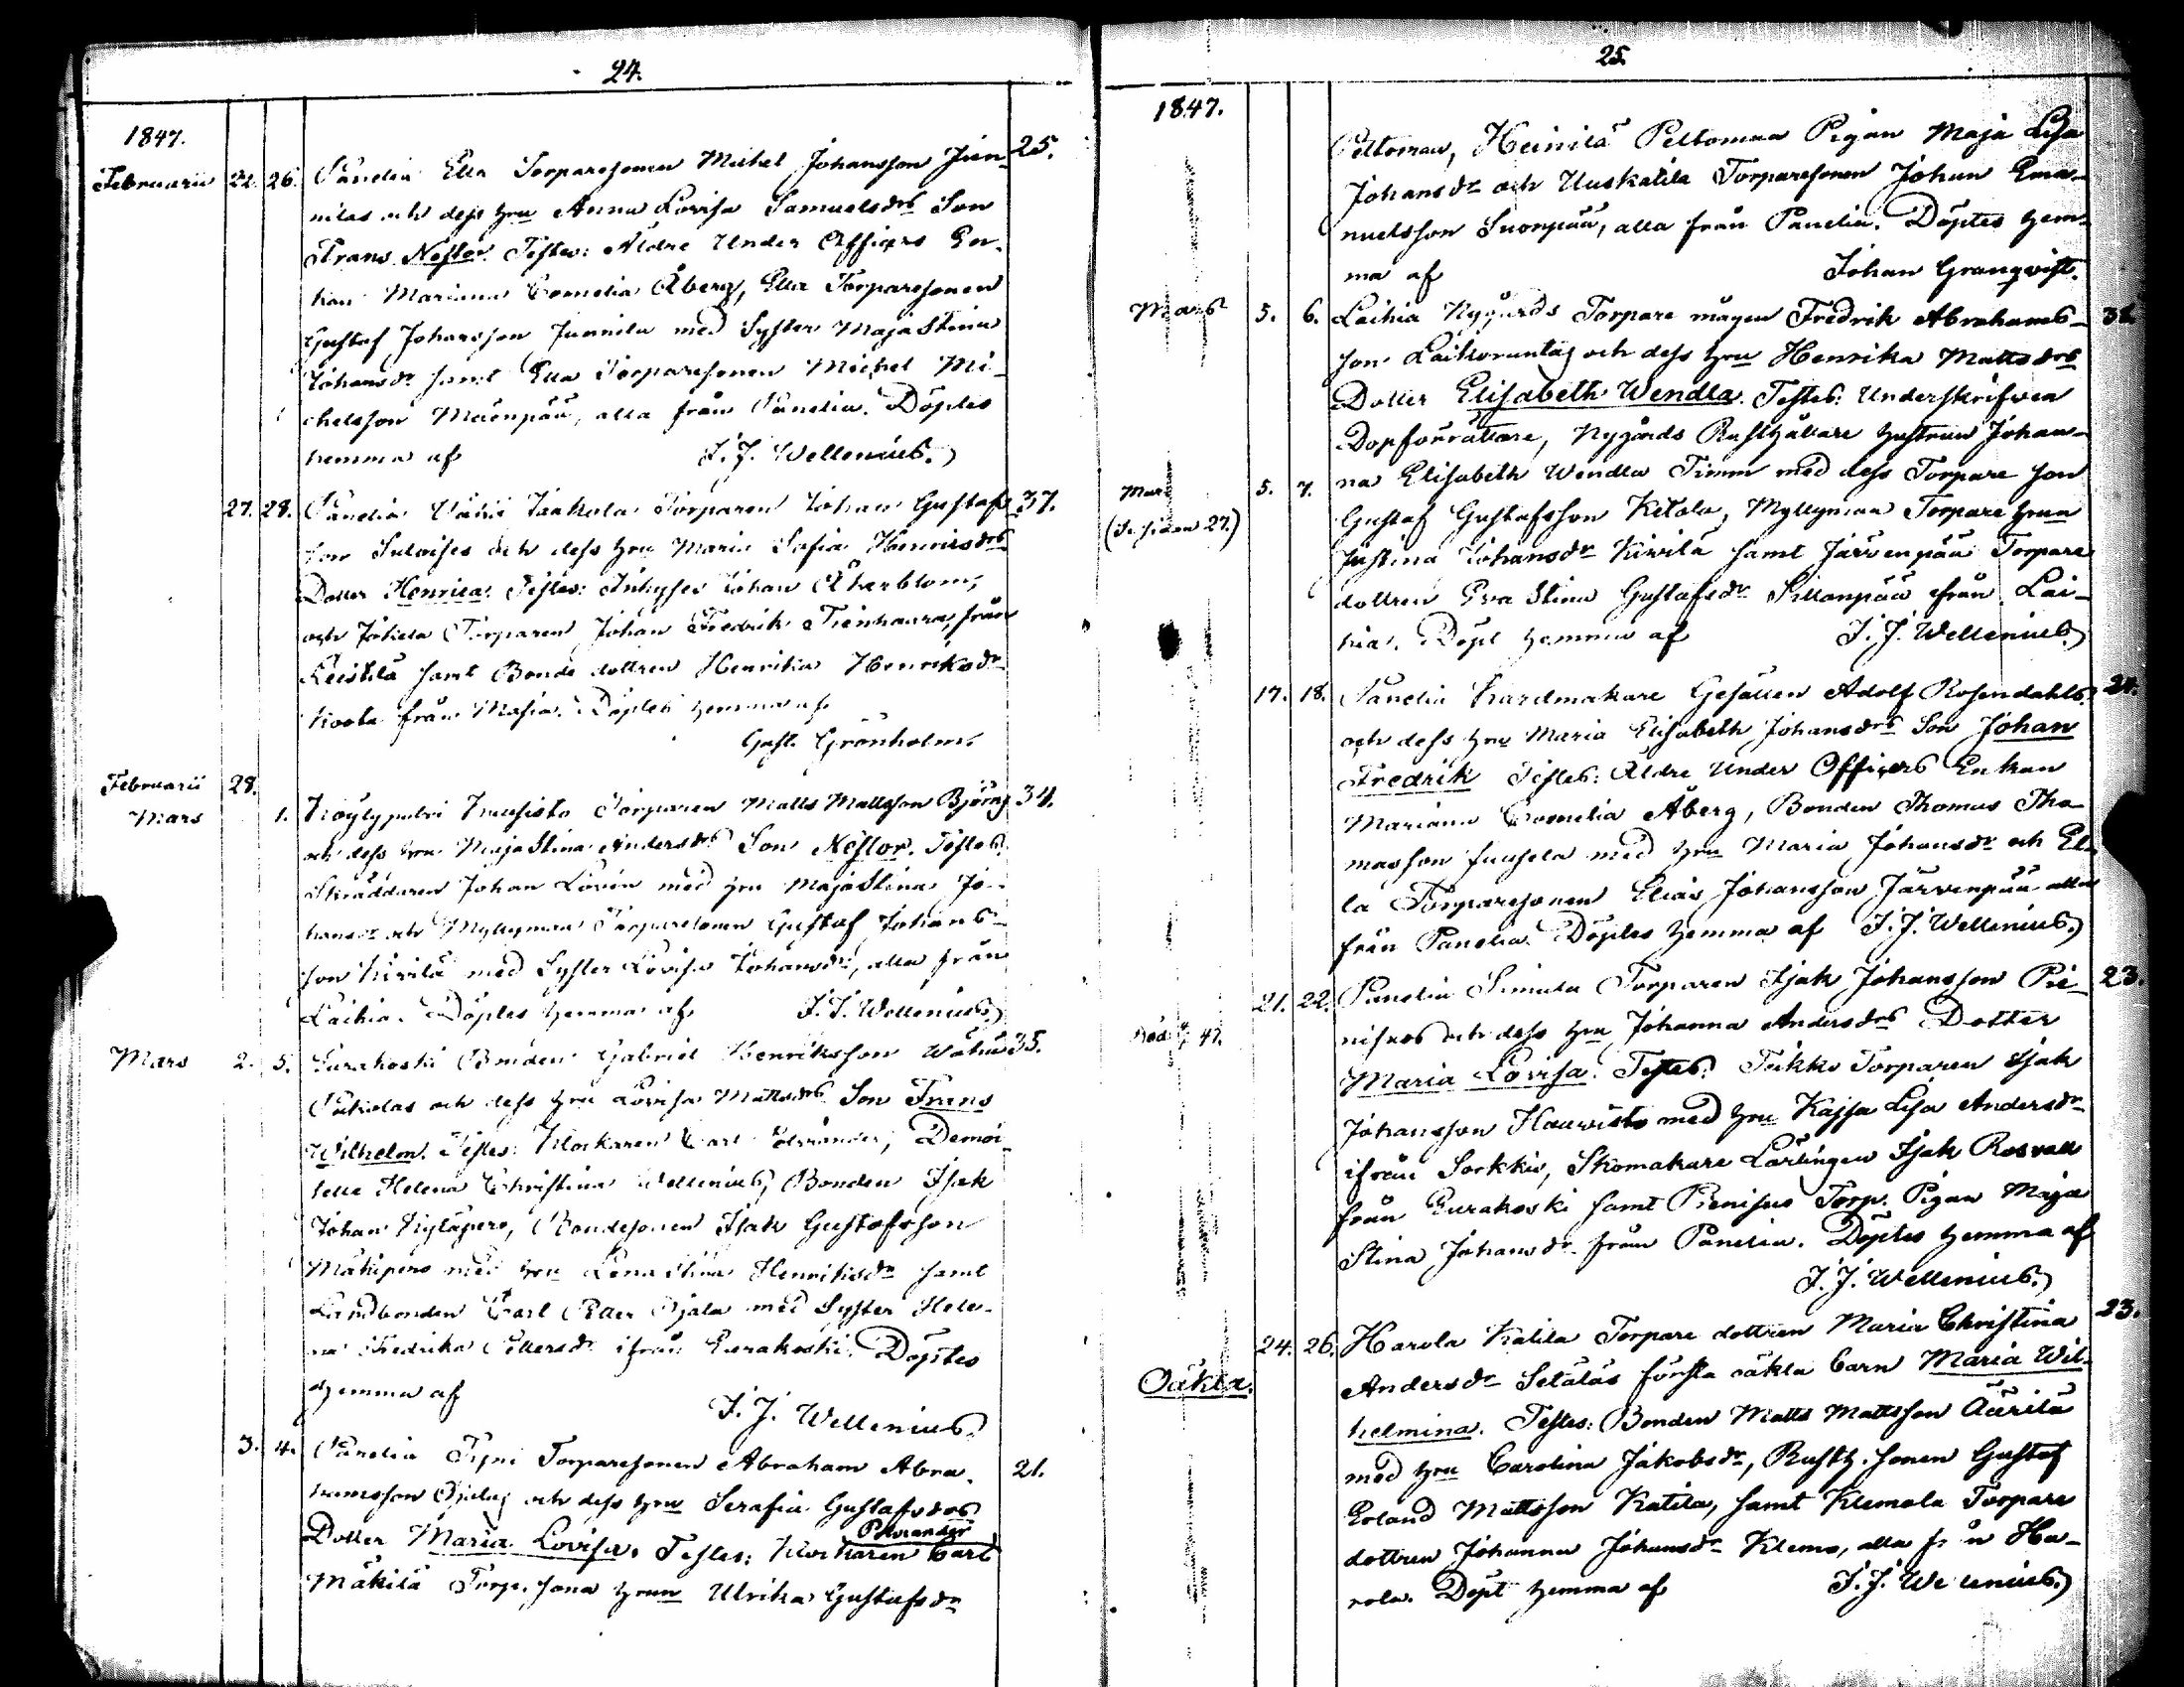 24.
1847.
Februarii 22. 26. Panelia Ella Torparesonen Michel Johansson Jun- 25.
nilas och dess hru Anna Lovisa Samuelsdrs Son
Frans Nestor. Testes: Äldre Under Officers En-
kan Mariana Cornelia Åberg, Ella Torparesonen
Gustaf Johansson Junnila med Syster Maja Stina
Johansdr samt Ella Torparesonen Michel Mi-
chelsson Mäenpää, alla från Panelia. Döptes
hemma af J. J. Wellenius.
27. 28. Panelia Jaakola Torparen Johan Gustafs- 37.
son och dess hru Maria Sofia Henricsdrs
Dotter Henrica. Testes: Johan Åkerblom,
och Torparen Johan Fredrik Tienhaara, från
Leistilä samt Bonde dottren Henrika Henriksdr
från Döptes hemma af
Gust. Grönholm.
Februarii 28.
Mars 1. Köylypolvi Kuusisto Torparen Matts Mattsson Björns 34.
och dess hru Maja Stina Andersdrs Son Nestor. Testes:
Skräddaren Johan Lovén med hru Maja Stina Jo-
hansdr och Myllymaa Torparesonen Gustaf Johans-
son Kivilä med Syster Lovisa Johansdr, alla från
Laihia. Döptes hemma af J. J. Wellenius.
Mars 2. 5. Eurakoski Bonden Gabriel Henriksson Wähä 35.
och dess hru Lovisa Mattsdrs Son Frans
Wilhelm. Testes: Klockaren Carl Polviander, Demoi-
selle Helena Christina Wellenius, Bonden Isak
Johan Kyläpero, Bondesonen Isak Gustafsson
Mäkipero med hru Lena Stina Henriksdr samt
Landbonden Carl Petter Ojala med Syster Hele-
na Fredrika Pettersdr ifrån Eurakoski. Döptes
hemma af
J. J. Wellenius.
3. 4. Panelia Torparesonen Abraham Abra- 21.
hamsson Ojalas och dess hru Serafia Gustafsdrs
Dotter Maria Lovisa. Testes: Klockaren Carl
Polviander
Mäkilä Torp. sona hrun Ulrika Gustafsdr
25.
1847.
Peltomaa, Heinilä Peltomaa Pigan Maja Lisa
Johansdr och Uuskatila Torparesonen Johan Ema-
nuelsson Suonpää, alla från Panelia. Döptes hem-
ma af Johan Granqvist.
Mars 5. 6. Laihia Nygårds Torpare mågen Fredrik Abrahams-
son och dess hru Henrika Mattsdrs
Dotter Elisabeth Wendla. Testes: Underskrifven
Dopförrättare, Nygårds Rusthållare hustrun Johan-
Mars 5. 7. na Elisabeth Wendla Timm med dess Torpare son
(Se sidan 27.) Gustaf Gustafsson Ketola, Myllymaa Torpare hrun
Justina Johansdr Kivilä samt Järvenpää Torpare
dottren Eva Stina Gustafsdr Sillanpää från Lai-
hia. Döpt hemma af J. J. Wellenius.
17. 18. Panelia Kardmakare Gesällen Adolf Rosendahls 24.
och dess hru Maria Elisabeth Johansdrs Son Johan
Fredrik Testes: Äldre Under Officers Enkan
Mariana Cornelia Åberg, Bonden Thomas Tho-
masson Juusela med hru Maria Johansdr och El-
la Torparesonen Elias Johansson Järvenpää alla
från Panelia. Döptes hemma af J. J. Wellenius.
21. 22. Panelia Simula Torparen Isak Johansson Pie- 23.
och dess hru Johanna Andersdrs Dotter
Maria Lovisa. Testes: Torparen Isak
Johansson Hauvisto med hru Kajsa Lisa Andersdr
ifrån Sorkkis, Skomakare Lärlingen Isak Rosvall
från Eurakoski samt Torp. Pigan Maja
Stina Johansdr från Panelia. Döptes hemma af
J. J. Wellenius.
24. 26. Harola Katila Torpare dottren Maria Christina 23.
Oäkta. Andersdr Setäläs första oäkta barn Maria Wil-
helmina. Testes: Bonden Matts Mattsson Äärilä
med hru Carolina Jakobsdr, Rusth. sonen Gustaf
Erland Mattsson Katila, samt Klemola Torpare
dottren Johanna Johansdr Klemo, alla från Ha-
rola. Döpt hemma af J. J. Wellenius.